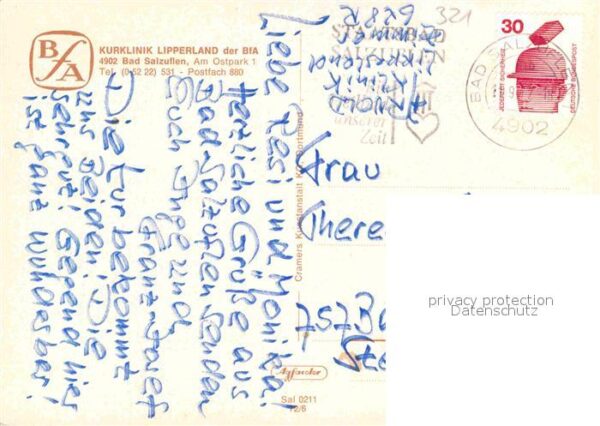 BfA
KURKLINIK LIPPERLAND der BfA
4902 Bad Salzuflen, Am Ostpark 1
Tel. (0 52 22) 531 - Postfach 880
Liebe Resi und Monika!
Herzliche Grüße aus
Bad-Salzuflen senden
Euch Inge und
Franz-Josef
Die Kur bekommt
uns Beiden! Die
Gegend hier
ist ganz wunderbar!
Cramers Kunstanstalt KG, Dortmund
321
STAATSBAD
SALZUFLEN
unserer
Zeit
Klinik
BAD SALZUFLEN
4902
30
JEDERZEIT SICHERHEIT
DEUTSCHE BUNDESPOST
Frau
There
757 B
Agfacolor
Sal 0211
privacy protection
Datenschutz